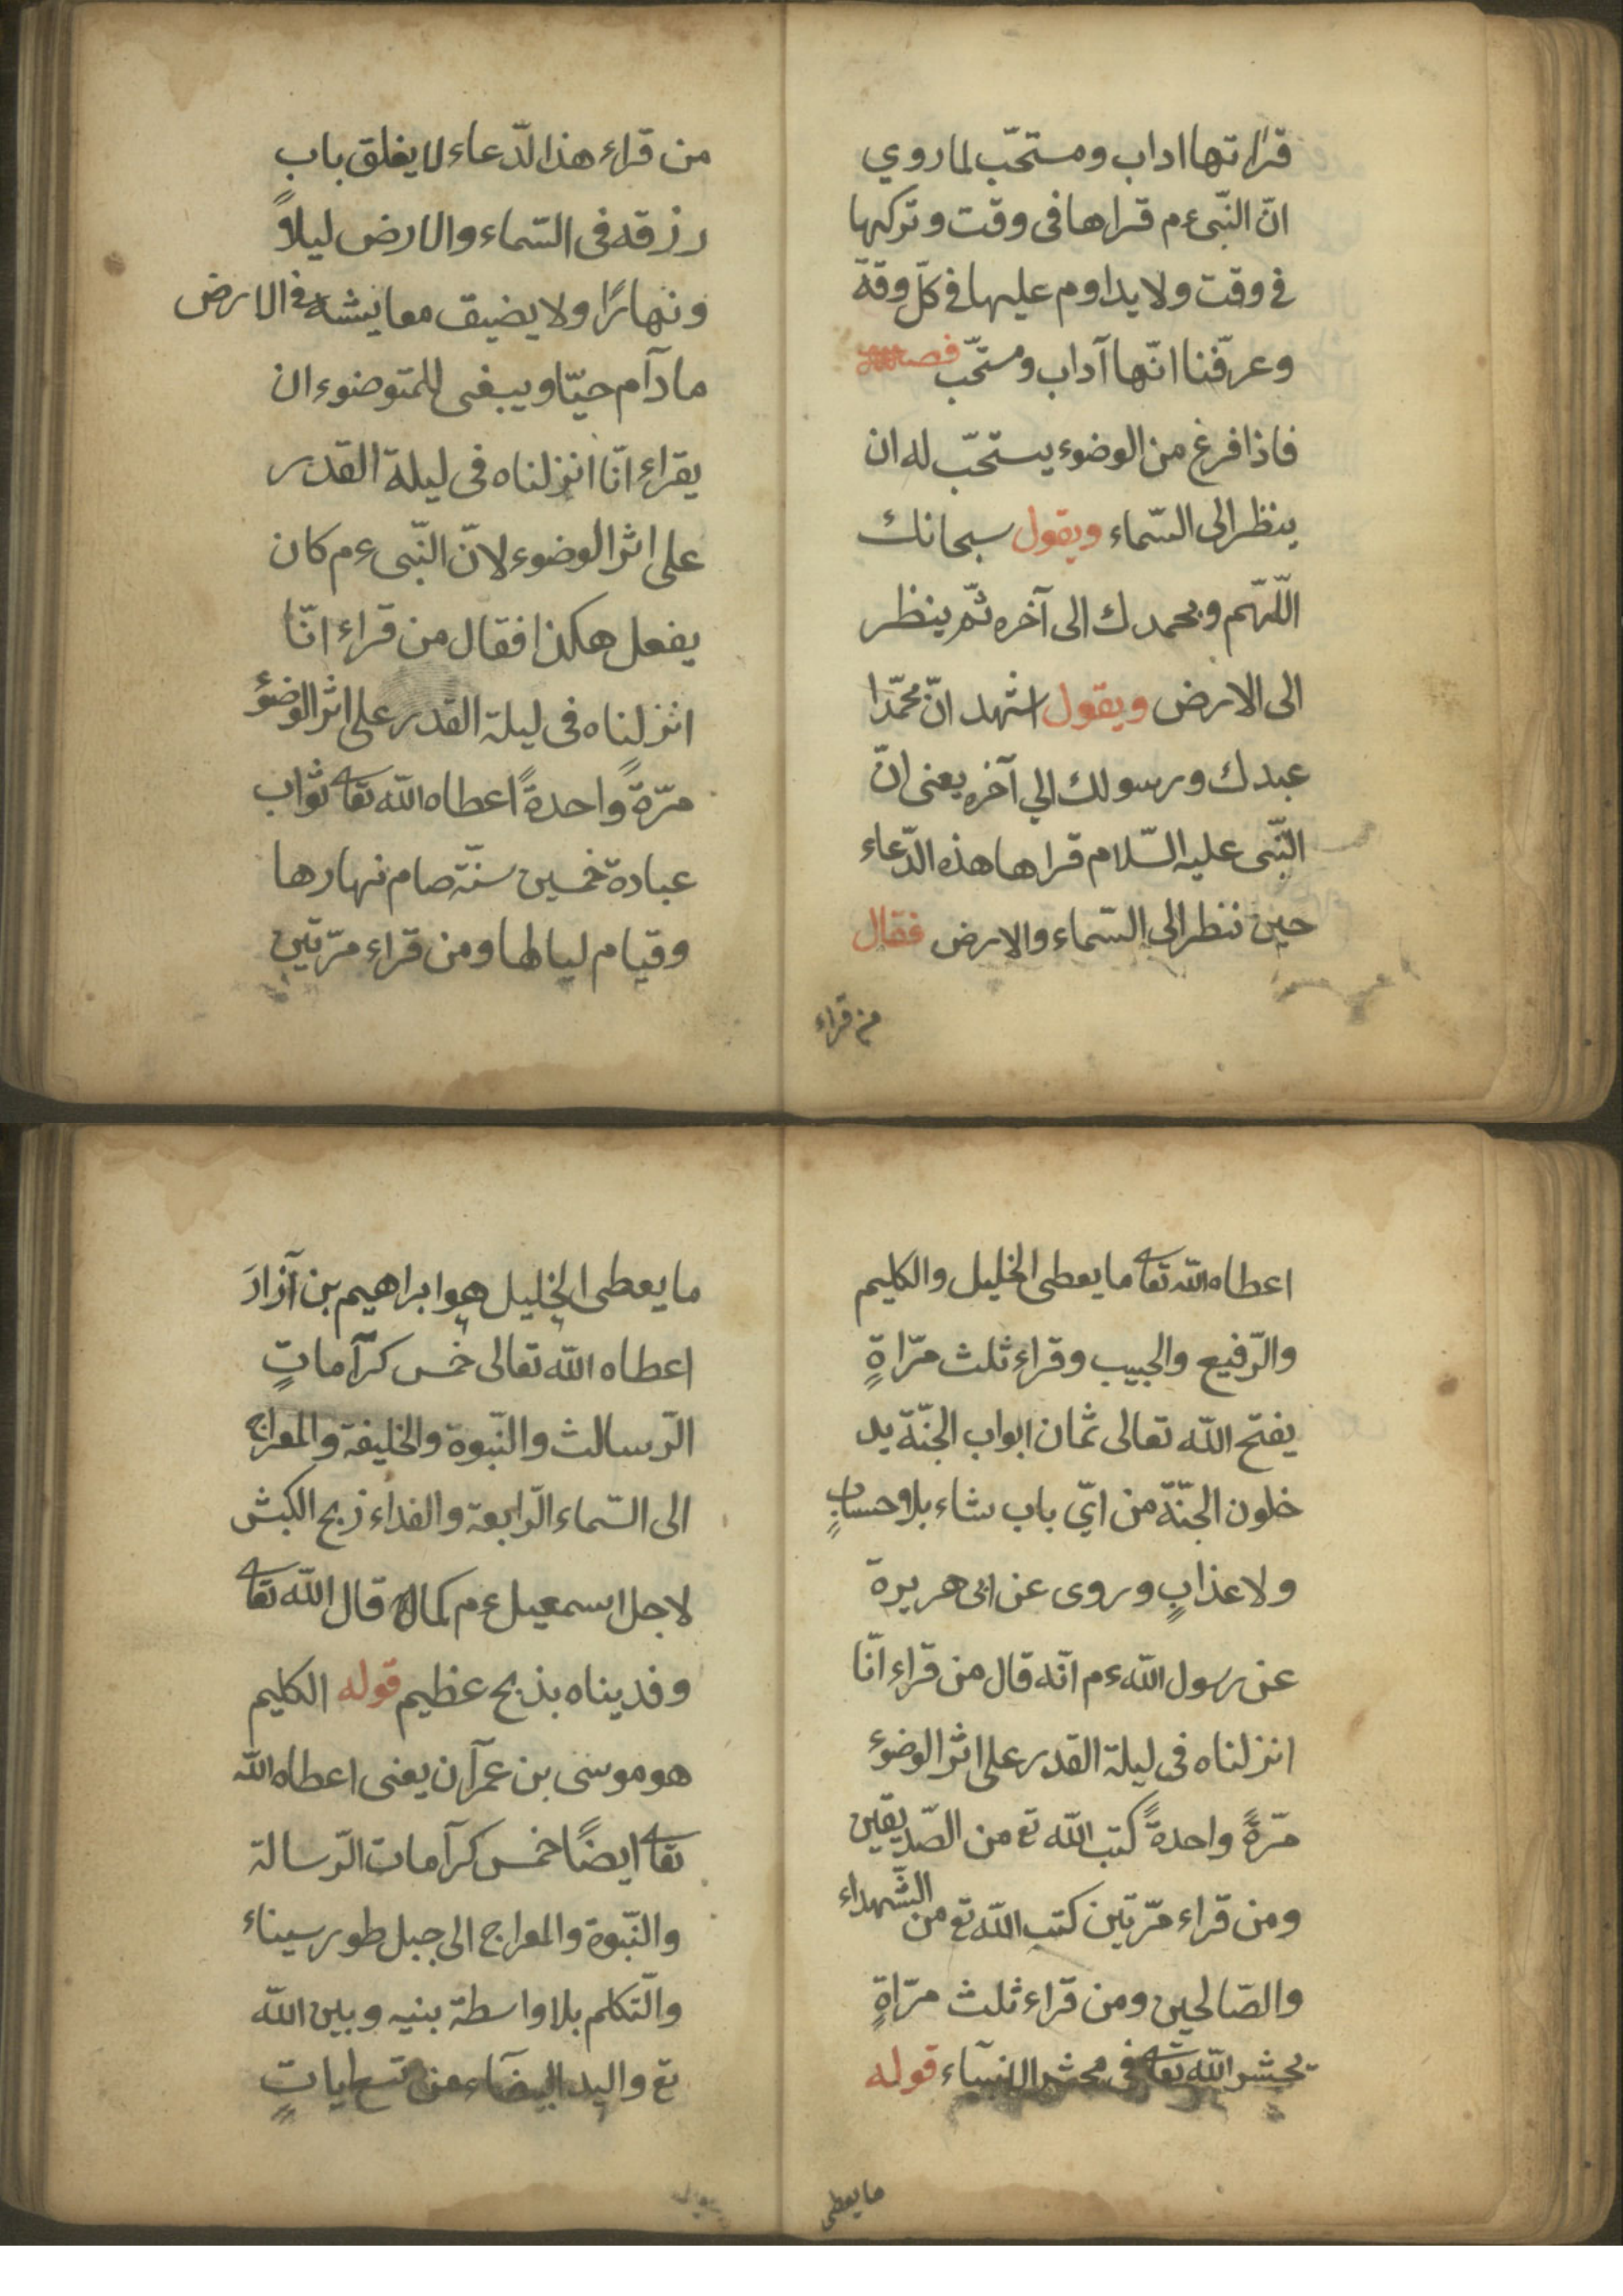 قراتها اداب ومستحّب لما روي
انّ النّبى ءم قراها فى وقت وتركها
فى وقت ولا يداوم عليها فى كلّ وقة
وعرّفنا انّها آداب ومستحّب فصل
فاذا فرغ من الوضوء يستحّب له ان
ينظر الى السّماء ويقول سبحانك
اللّهّم وبحمدك الى آخره ثمّ ينظر
الى الارض ويقول اشهد انّ محمّدا
عبدك ورسولك الي آخره يعنى انّ
النّبى عليه السّلام قراها هذه الدّعاء
حين ننظر الى السّماء والارض فقال
من قراء
من قراء هذا لدّعاء لا يغلق باب
رزقه فى السّماء والارض ليلاً
ونهارًا ولا يضيق معايشه فى الارض
مادآم حيّا ويبغى للمتوضوء ان
يقراء انّا انزلناه فى ليلة القدر
على اثر الوضوء لانّ النّبى ءم كان
يفعل هكذا فقال من قراء انّا
انزلناه فى ليلة القدر على اثر الوضوء
مرّةً واحدةً اعطاه الله تعا ثواب
عبادة خمسين سنّة صام نهارها
وقيام ليالها ومن قراء مرّتين
اعطاه الله تعا ما يعطى الخليل والكليم
والرّفيع والحبيب وقراء ثلث مرّاةٍ
يفتح الله تعالى ثمان ابواب الجنّة يد
خلون الجنّة من ايّ باب شاء بلا وحسابٍ
ولا عذابٍ وروى عن ابى هريرة
عن رسول الله ءم انّه قال من قراء انّا
انزلناه فى ليلة القدر على اثر الوضوء
مرّةً واحدةً كتب الله تع من الصّديقين
ومن قراء مرّتين كتب الله تع من الشّهداء
والصّالحين ومن قراء ثلث مرّاةٍ
يحشر الله تعا فى محشر الانبياء قوله
ما يعطى
ما يعطى الخليل هو ابراهيم بن آزارَ
اعطاه الله تعالى خمس كرّآماتٍ
الرّسالث والنّبوة والخليفة والمعراج
الى السّماء الرّابعة والفداء زبح الكبش
لاجل اسمعيل ءم كما قال الله تعا
وفديناه بذبح عظيم قوله الكليم
هو موسى بن عمرآن يعنى اعطاه الله
تعا ايضًا خمس كرآمات الرّسالة
والنّبوة والمعراج الى جبل طور سيناء
والتّكلم بلا واسطة بنيه وبين الله
تع واليد البيضآء من تسع اياتٍ